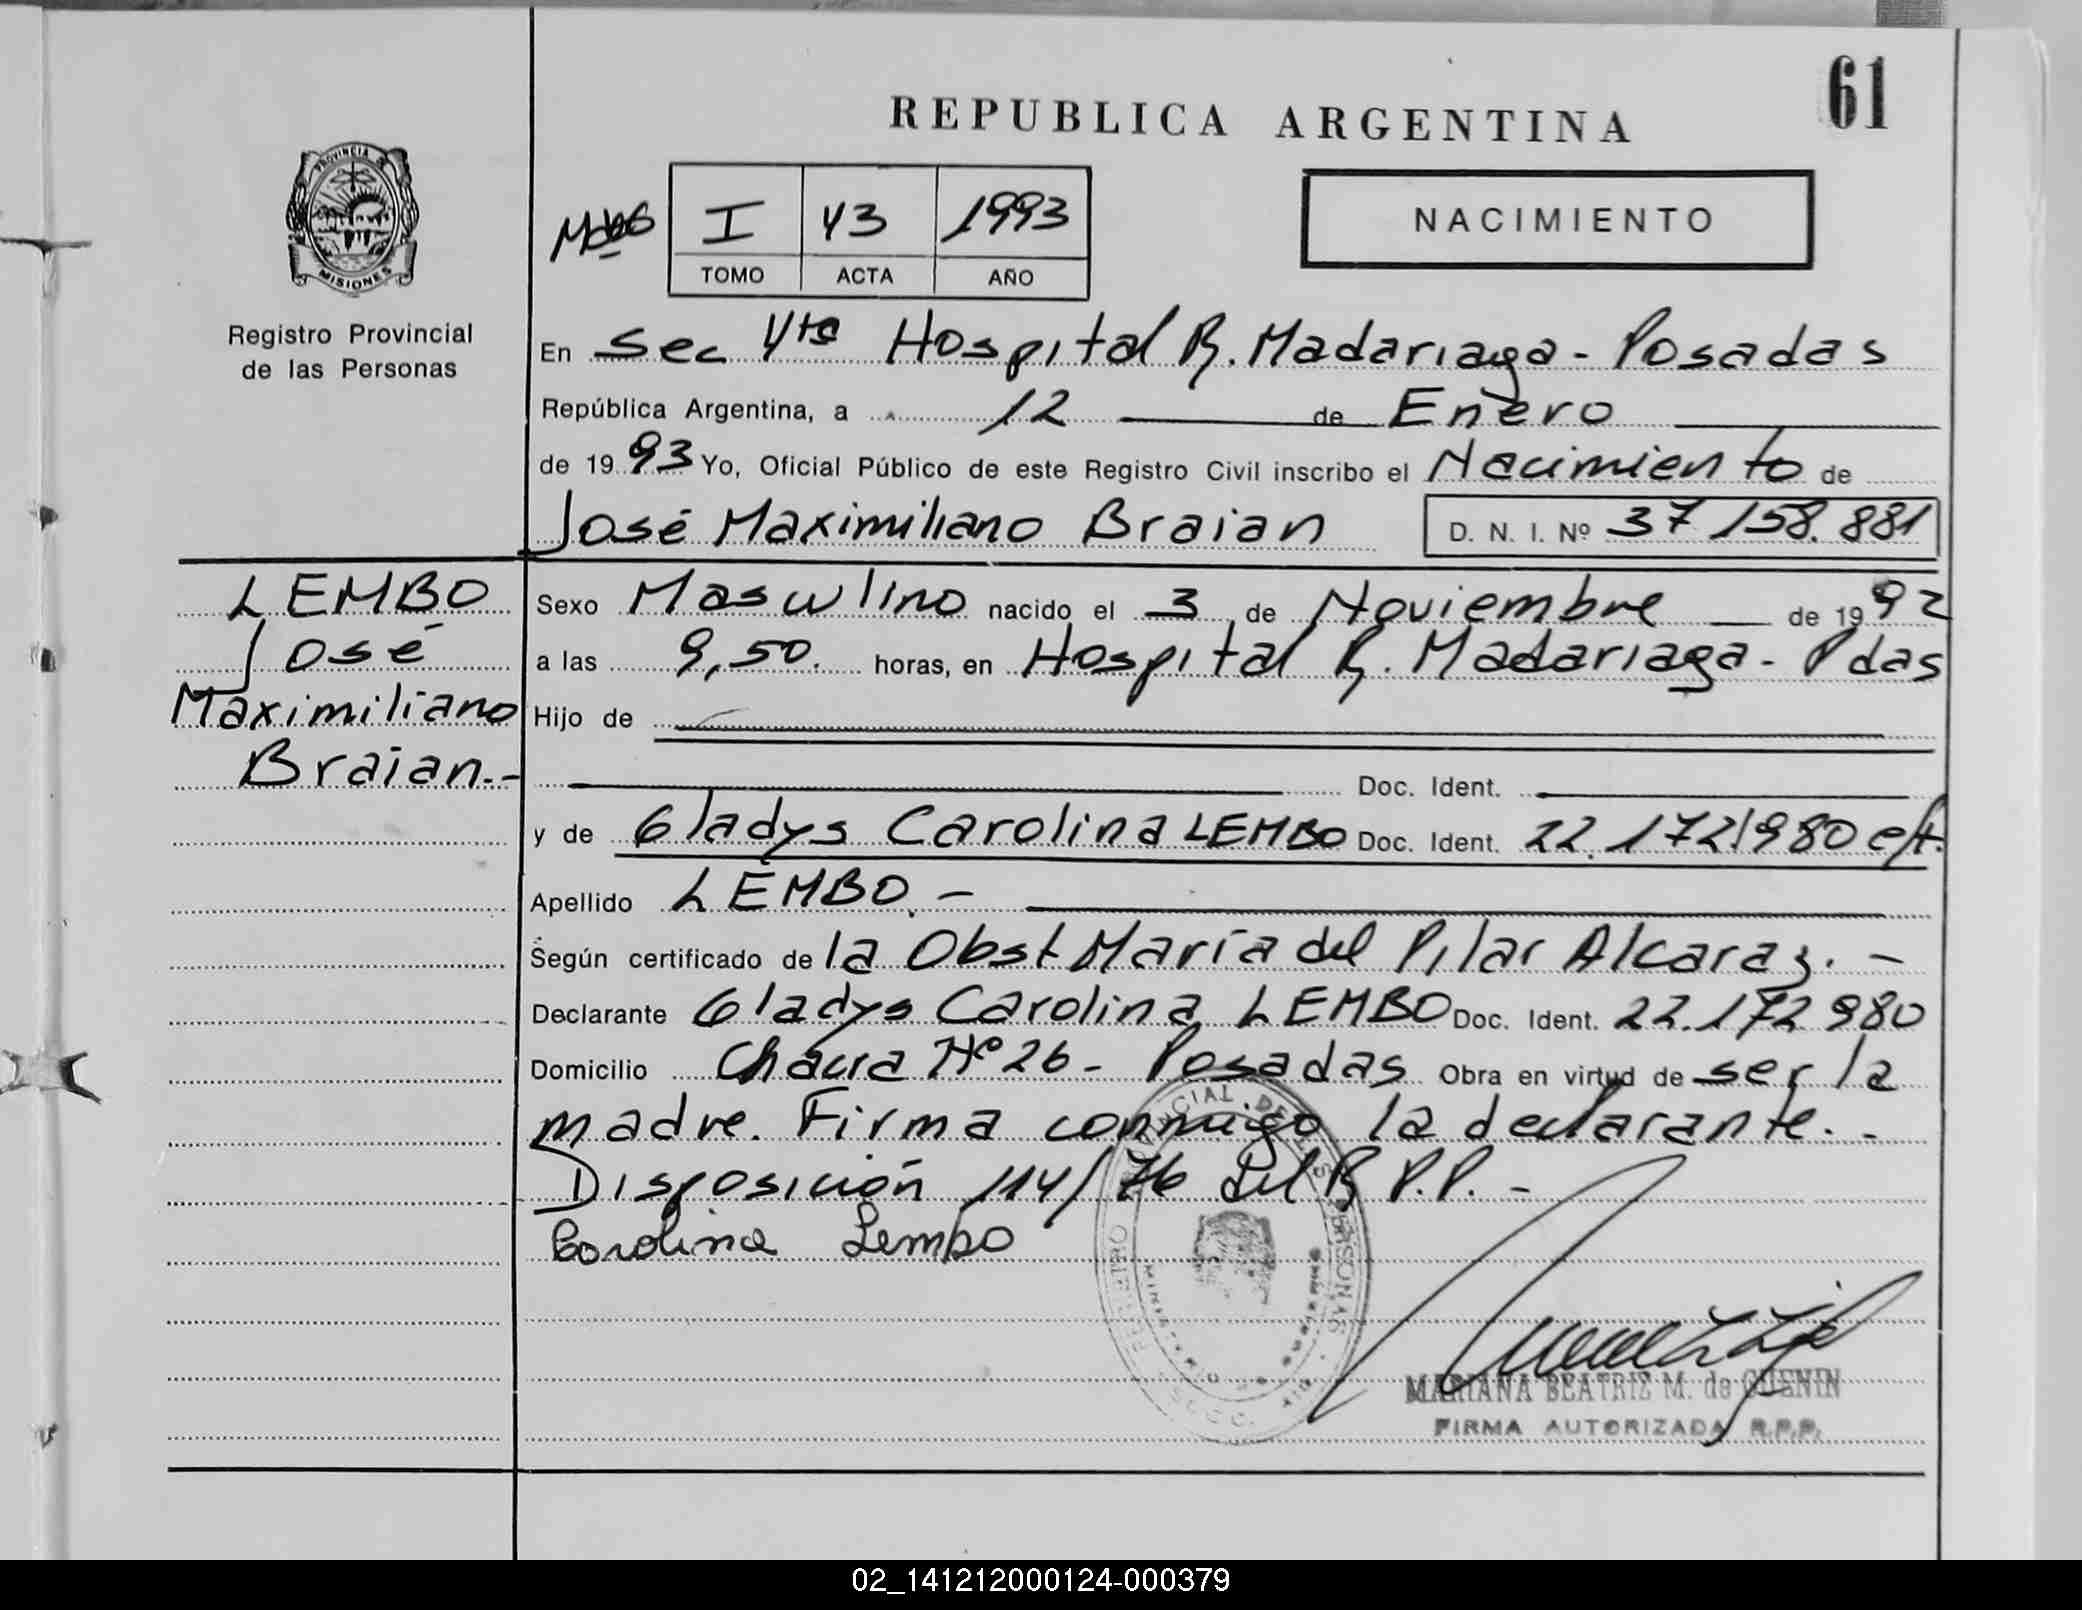 61
REPUBLICA ARGENTINA
PROVINCIA DE
MISIONES
Registro Provincial
de las Personas
I 43 1993
TOMO ACTA AÑO
NACIMIENTO
En Sec 4ta Hospital R. Madariaga - Posadas
República Argentina, a 12 de Enero
de 1993 Yo, Oficial Público de este Registro Civil inscribo el Nacimiento de
José Maximiliano Braian D. N. I. Nº 37 158.881
LEMBO
José
Maximiliano
Braian.-
Sexo Masculino nacido el 3 de Noviembre de 1992
a las 9,50. horas, en Hospital R. Madariaga - Pdas
Hijo de
Doc. Ident.
y de Gladys Carolina LEMBO Doc. Ident. 22.172.980
Apellido LEMBO.-
Según certificado de la Obst María del Pilar Alcaraz.-
Declarante Gladys Carolina LEMBO Doc. Ident. 22.172 980
Domicilio Chacra Nº 26 - Posadas Obra en virtud de ser la
madre. Firma conmigo la declarante.-
Disposición 114/76 del R P.P.-
Carolina Lembo
MARIANA BEATRIZ M. de GUENIN
FIRMA AUTORIZADA R.P.P.
02_141212000124-000379